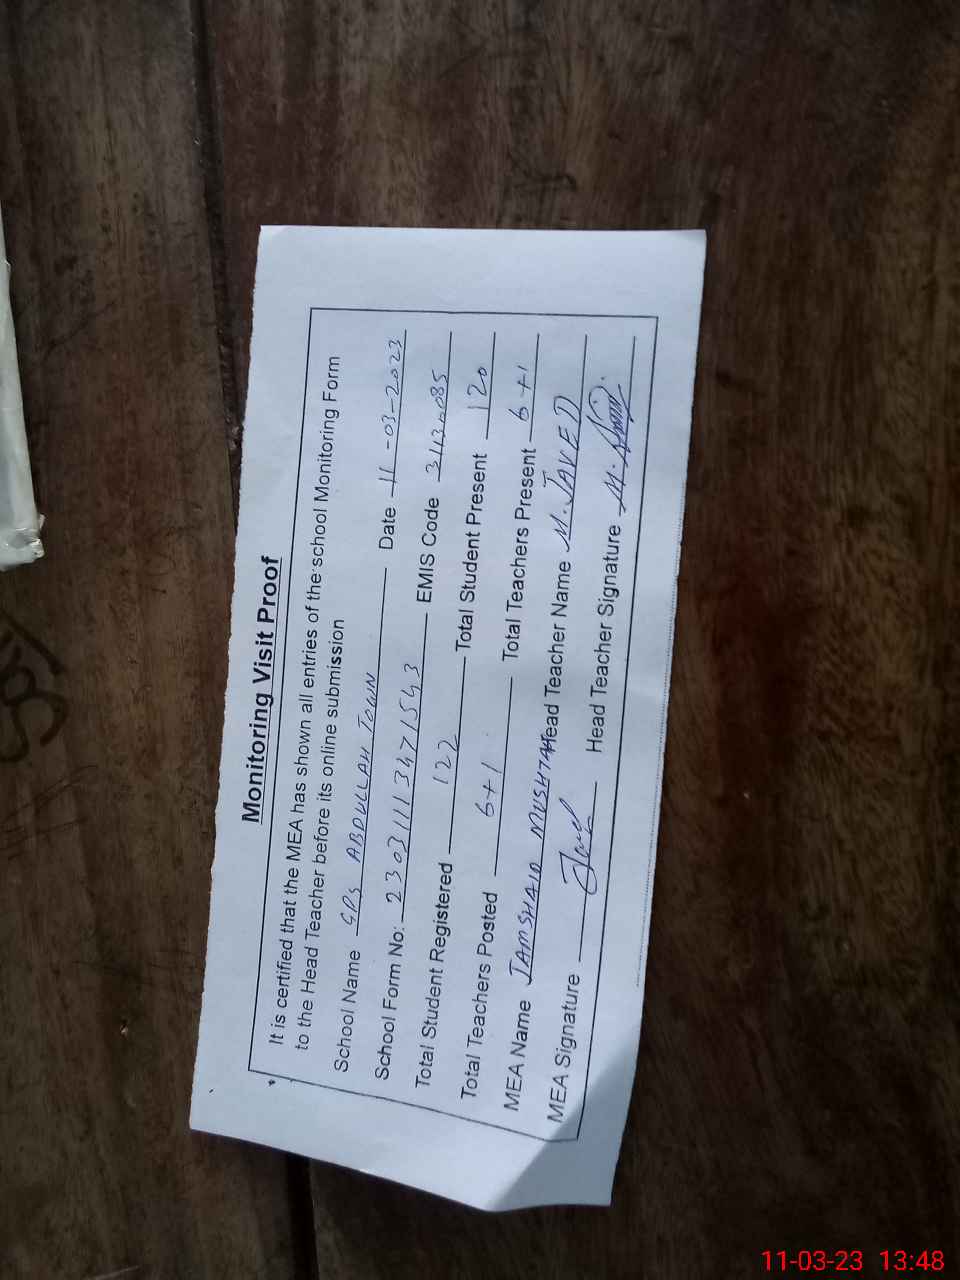 Monitoring Visit Proof
It is certified that the MEA has shown all entries of the school Monitoring Form
to the Head Teacher before its online submission
School Name GPS ABDULLAH TOWN Date 11-03-2023
School Form No: 2303111347 1543 EMIS Code 31130085
Total Student Registered 122 Total Student Present 120
Total Teachers Posted 6+1 Total Teachers Present 6+1
MEA Name JAMSHAID MUSHTAQ Head Teacher Name M. JAVED
MEA Signature Head Teacher Signature
11-03-23 13:48